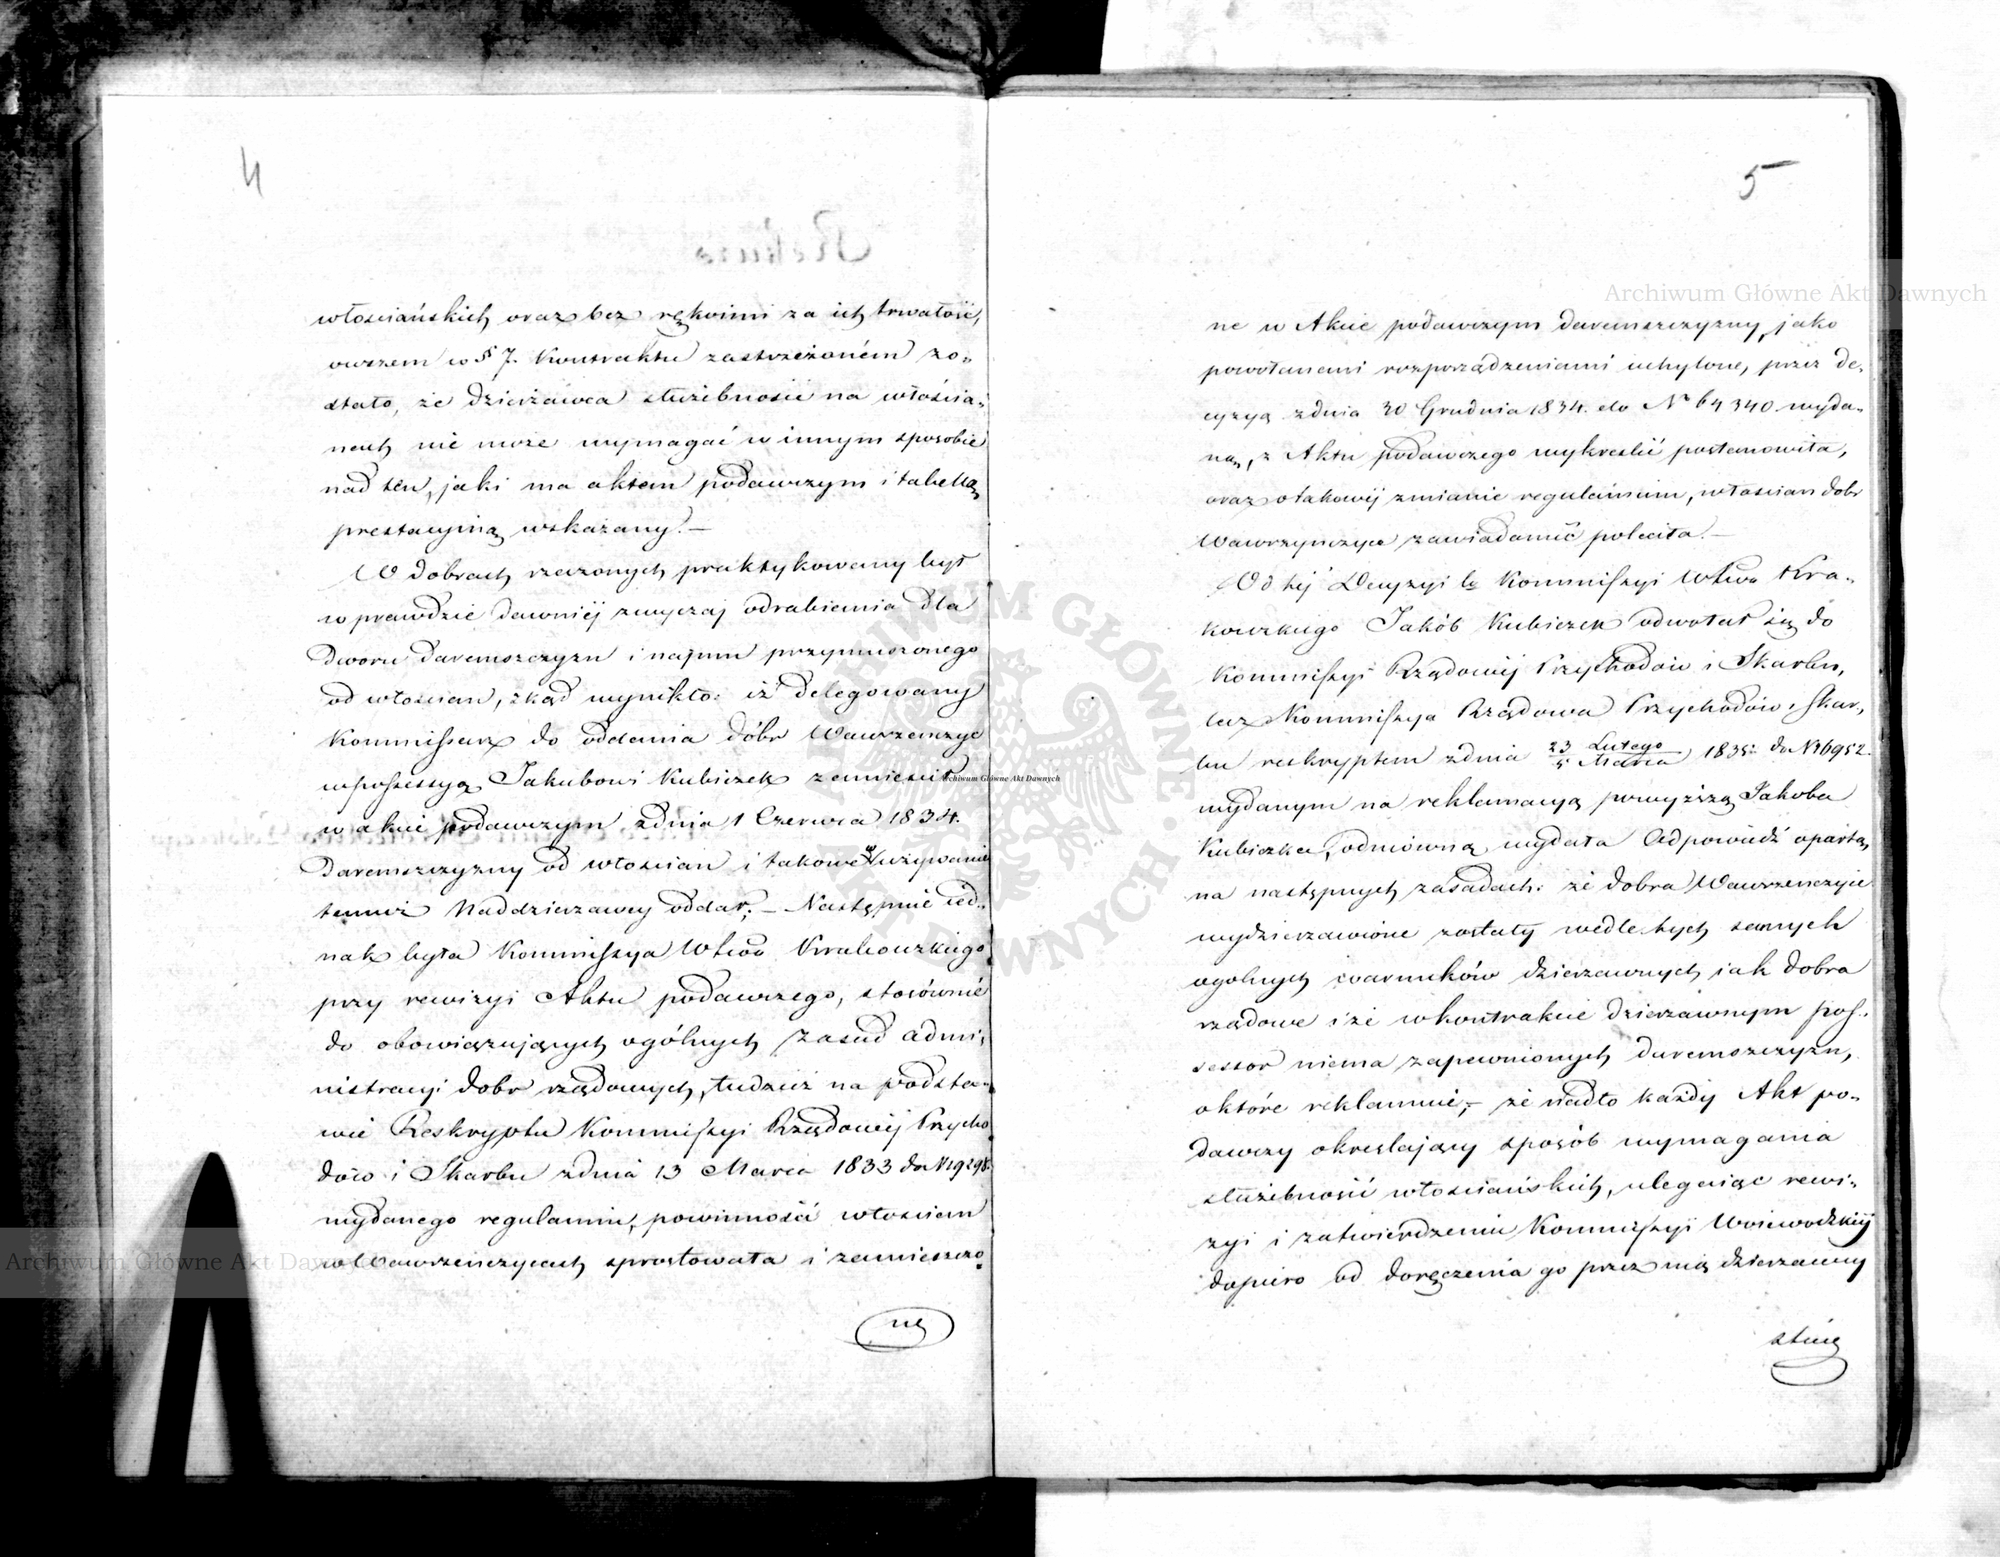 4
włosciańskich oraz bez rękoimi za ich trwałość,
owszem w § 7. Kontraktu zastrzeżonem zo-
stało, że dzierżawca służebności na włościa-
nach nie może wymagać w innym sposobie
nad ten, jaki ma aktem podawczym i tabellą
prestacyjną wskazany. —
W dobrach rzeczonych praktykowany był
wprawdzie dawniéj zwyczaj odrabiania dla
Dworu daremszczyzn i najmu przymuszonego
od włoscian, zkąd wynikło: iż delegowany
Kommissarz do oddania dóbr Wawrzenczyc
w possessyą Jakubowi Kubiczek zamieścił
w akcie podawczym zdnia 1 Czerwca 1834.
Daremszczyzny od włoscian i takowe w używanie
temuż Naddzierzawcy oddał. — Następnie ied-
nak była Kommissya Wtwa Krakowskiego
przy rewizyi Aktu podawczego, stosównie
do obowiązujących ogólnych zasad admi-
nistracyi dobr rządowych, tudzież na podsta-
wie Reskryptu Kommissyi Rządowéj Przycho-
dów i Skarbu zdnia 13 Marca 1833 do N 19298.
wydanego regulaminu, powinności włoscian
w Wawrzenczycach sprostowała i zamieszczo-
ne
5
ne w Akcie podawczym daremszczyzny, jako
powołanemi rozporządzeniami uchylone, przez de-
cyzyą zdnia 30 Grudnia 1834. do Nr 64340 wyda-
ną, z Aktu podawczego wykreslić postanowiła,
oraz o takowéj zmianie regulaminu, włoscian dobr
Wawrzynczyce zawiadomić poleciła. —
Od téj Decyzyi by Kommissyi Wtwa Kra-
kowskiego Jakób Kubiczek odwołał się do
Kommissyi Rządowéj Przychodów i Skarbu,
lecz Kommissya Rządowa Przychodów i Skar-
bu reskryptem zdnia 23 Lutego / 5 Marca 1835: do N 16952.
wydanym na reklamacyą powyższą Jakóba
Kubiczka, odmówną wydała Odpowiedź opartą,
na następnych zasadach: że dobra Wawrzenczyce
wydzierzawione zostały wedle tych samych
ogolnych warunków dzierzawnych jak dobra
rządowe i że w kontrakcie dzierzawnym pos-
sessor niema zapewnionych daremszczyzn,
o które reklamuie; — że nadto każdy Akt po-
dawczy okreslający sposób wymagania
służebności włosciańskich, ulegaiąc rewi-
zyi i zatwierdzeniu Kommissyi Woiewodzkiéj
dopiero od doręczenia go przez nią dzierzawcy
staię
Archiwum Główne Akt Dawnych
Archiwum Główne Akt Dawnych
Archiwum Główne Akt Dawnych
ARCHIWUM GŁÓWNE · AKT DAWNYCH ·